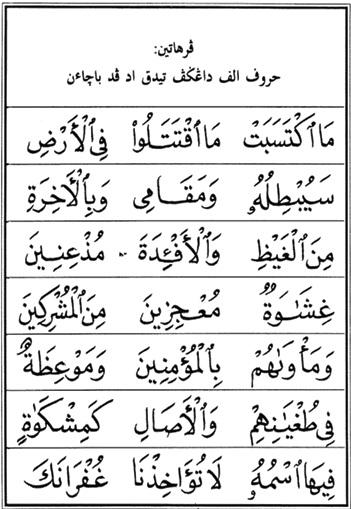 ڤرهاتين:
حروف الف داڠکڤ تيدق اد ڤد باچاءن
مَا ٱكْتَسَبَتْ مَا ٱقْتَتَلُوا۟ فِى ٱلْأَرْضِ
سَيُبْطِلُهُۥ وَمَقَامِى وَبِٱلْأَخِرَةِ
مِنَ ٱلْغَيْظِ وَٱلْأَفْئِدَةَ مُذْعِنِينَ
غِشَـٰوَةٌ مُعْجِزِينَ مِنَ ٱلْمُشْرِكِينَ
وَمَأْوَىٰهُمْ بِٱلْمُؤْمِنِينَ وَمَوْعِظَةٌ
فِى طُغْيَـٰنِهِمْ وَٱلْأَصَالِ كَمِشْكَوٰةٍ
فِيهَا ٱسْمُهُۥ لَا تُؤَاخِذْنَا غُفْرَانَكَ